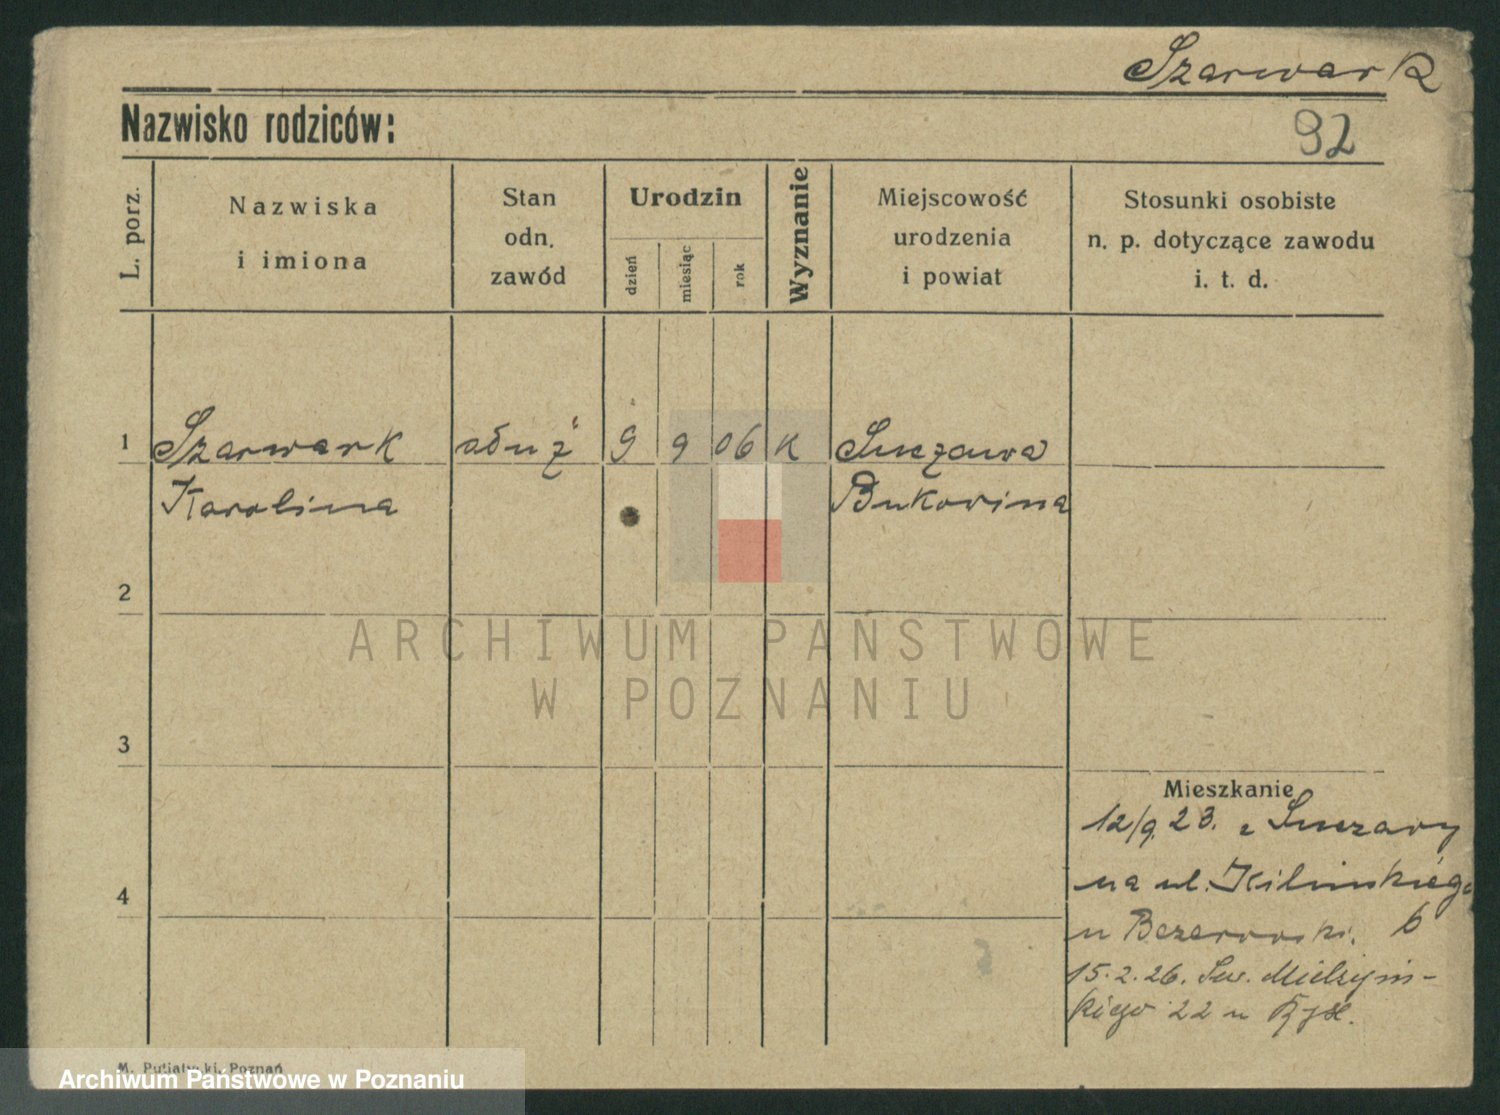 Szarwark
Nazwisko rodziców:
92
L. porz.
Nazwiska
i imiona
Stan
odn.
zawód
Urodzin
dzień
miesiąc
rok
Wyznanie
Miejscowość
urodzenia
i powiat
Stosunki osobiste
n. p. dotyczące zawodu
i. t. d.
1 Szarwark służ 9 9 06 K Suczawa
Karolina Bukowina
2
ARCHIWUM PAŃSTWOWE
W POZNANIU
3
Mieszkanie
12/9.23. z Suczawy
4
na ul. Kilińskiego
u 6
15.2.26. Sew. Mielżyń-
kiego 22 u
M. Putiatycki, Poznań
Archiwum Państwowe w Poznaniu